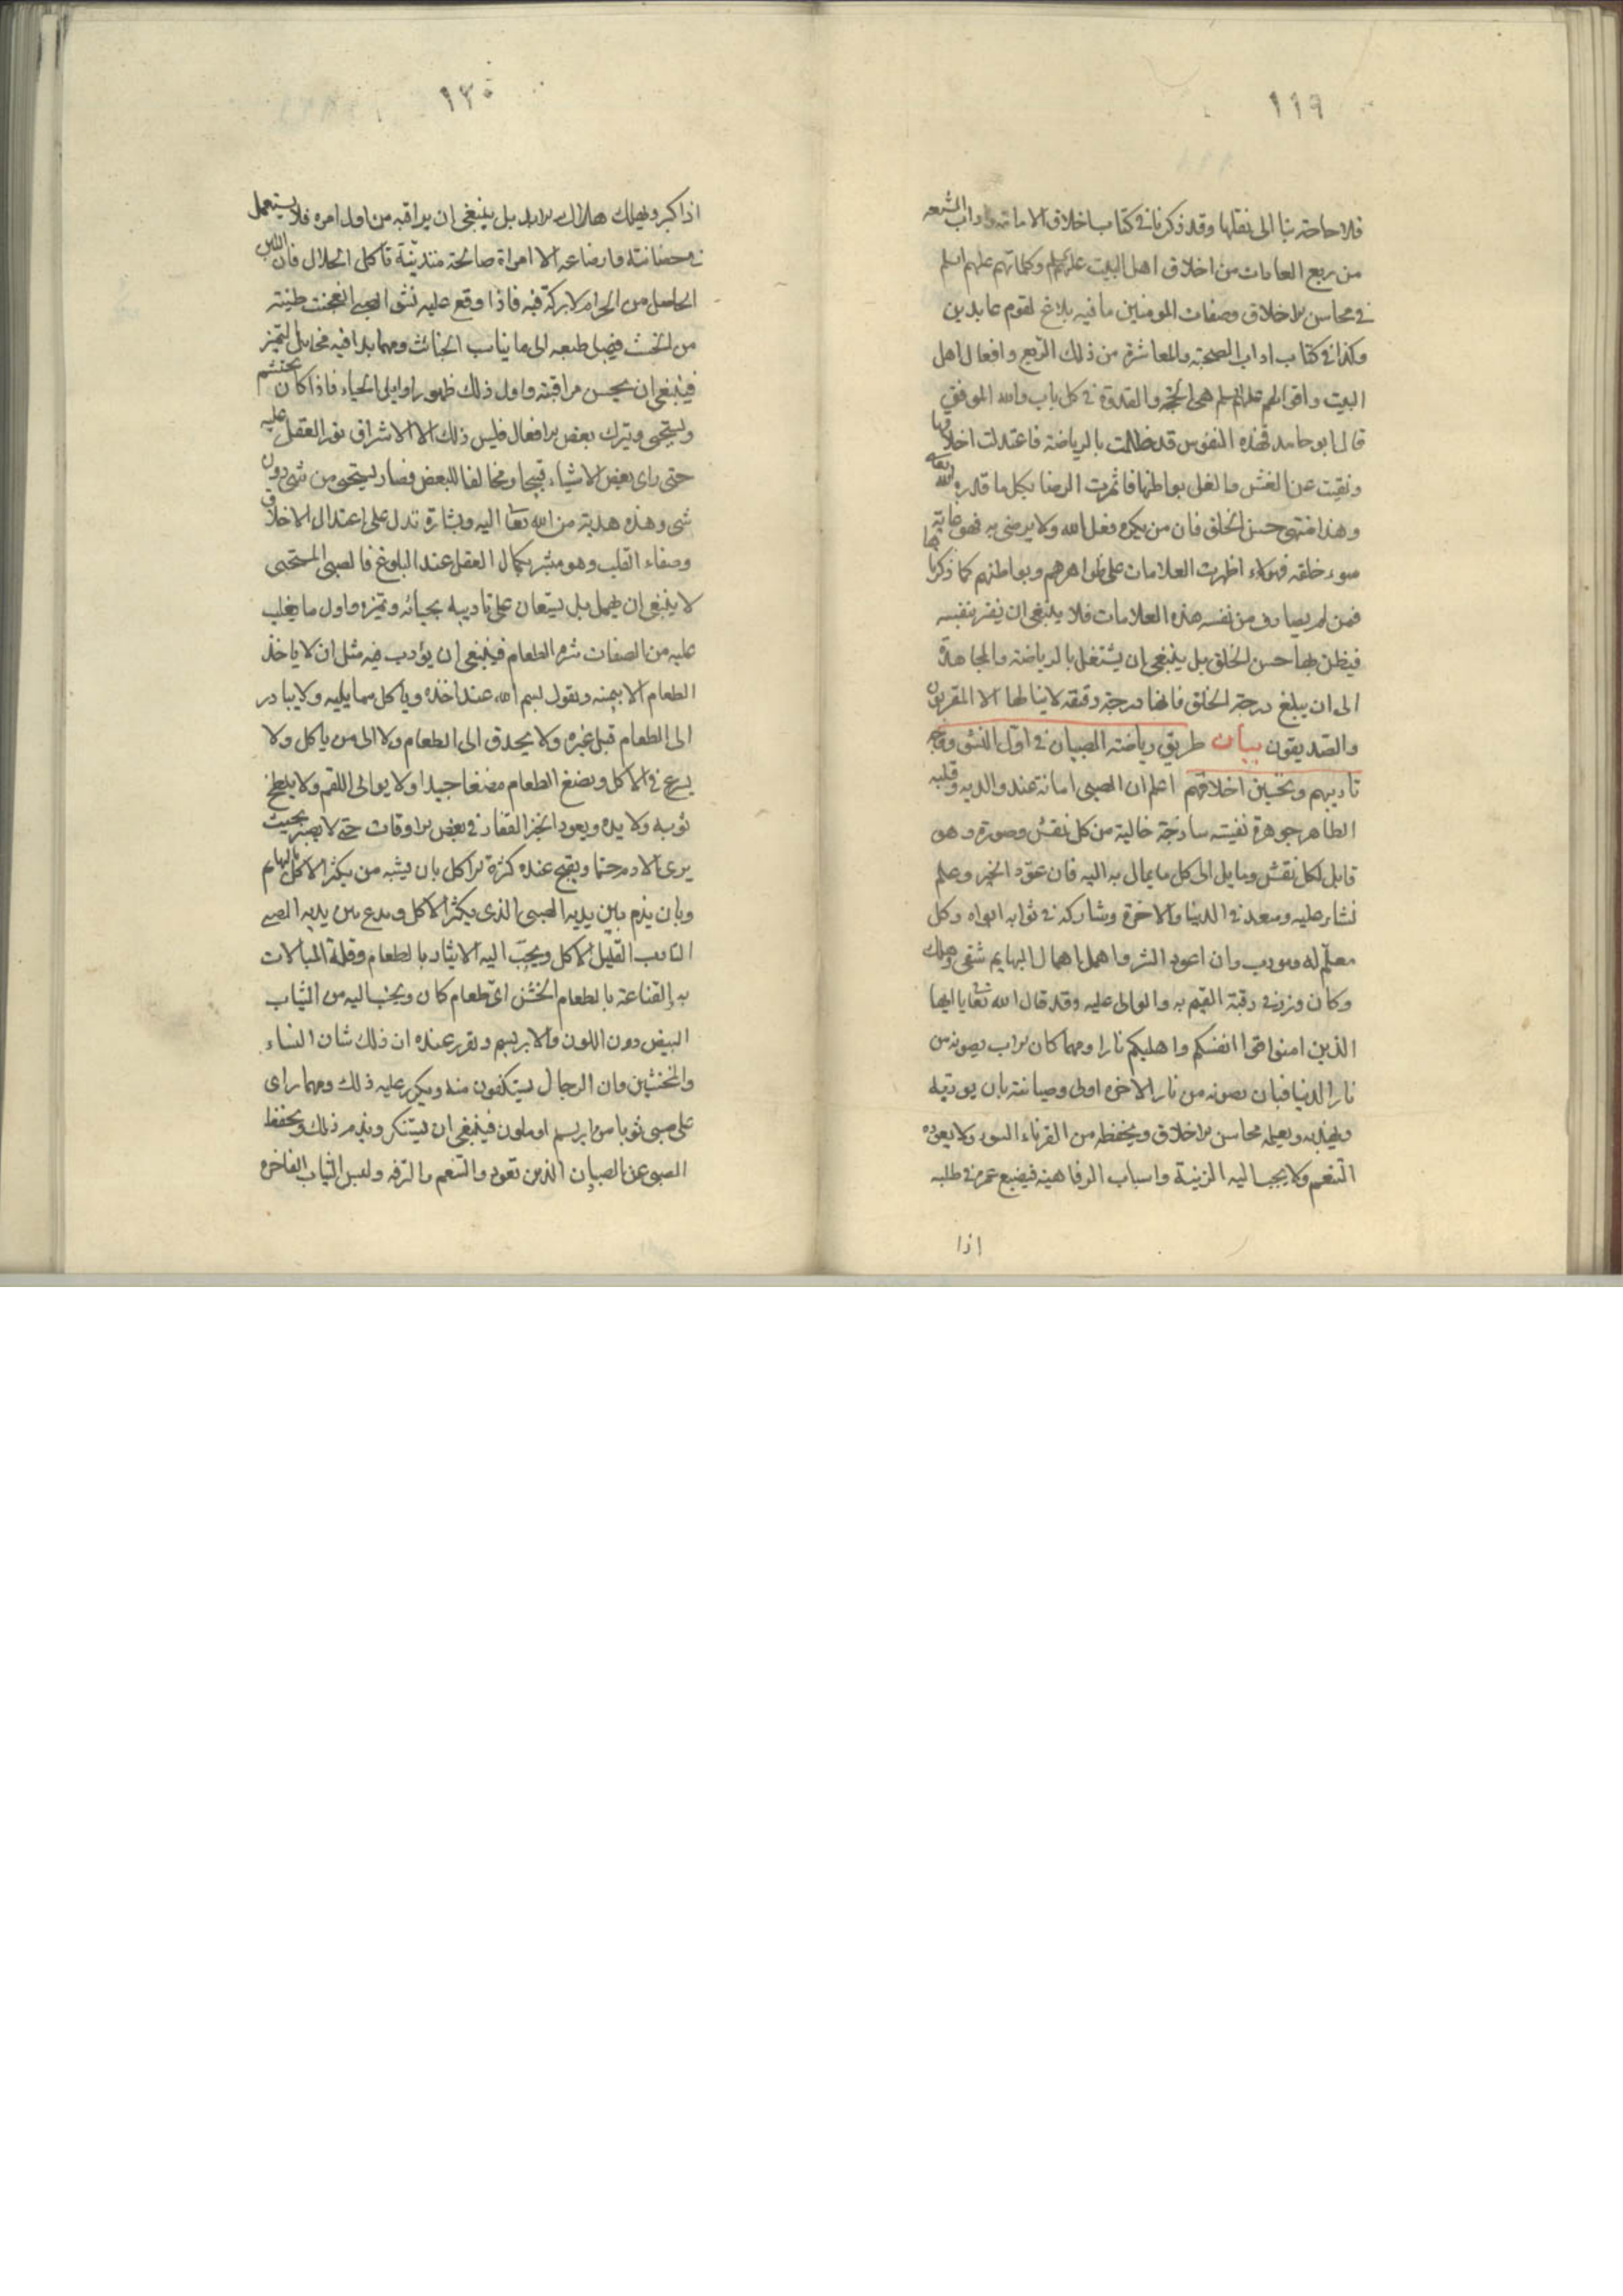 ١١٩
فلا حاجة بنا الى نقلها وقد ذكرنا في كتاب اخلاق الامامة واداب الشيعه
من ربع العادات من اخلاق اهل البيت عليهم السلم وكلماتهم عليهم السلم
في محاسن الاخلاق وصفات المومنين ما فيه بلاغ لقوم عابدين
وكذا في كتاب اداب الصحبة والمعاشرة من ذلك الربع وافعال اهل
البيت واقوالهم عليهم السلم هى الحجة والقدوة في كل باب والله الموفق
قال ابو حامد فهذه النفوس قد ذللت بالرياضة فاعتدلت اخلاقها
ونقيت عن الغش والغل بواطنها فاثمرت الرضا بكل ما قدره الله تعالى
وهذا منتهى حسن الخلق فان من يكره فعل الله ولا يرضى به فهو غاية
سوء خلقه فهولاء اظهرت العلامات على ظواهرهم وبواطنهم كما ذكرناها
فمن لم يصادف من نفسه هذه العلامات فلا ينبغي ان يغتر بنفسه
فيظن بها حسن الخلق بل ينبغي ان يشتغل بالرياضة والمجاهدة
الى ان يبلغ درجة الخلق فانها درجة دقيقه لا ينالها الا المقربون
والصديقون بيان طريق رياضة الصبيان في اول النشو ووجه
تاديبهم وتحسين اخلاقهم اعلم ان الصبى امانة عند والديه وقلبه
الطاهر جوهرة نفيسه ساذجة خالية من كل نقش وصورة وهو
قابل لكل نقش ومايل الى كل ما يمال به اليه فان عوّد الخير وعلم
نشاء عليه وسعد في الدنيا والاخرة وشاركه في ثوابه ابواه وكل
معلم له ومودب وان اعود الشر واهمل اهمال البهايم شقى وهلك
وكان وزره في رقبة القيم به والوالى عليه وقد قال الله تعالى يا ايها
الذين امنوا قوا انفسكم واهليكم نارا ومهما كان الاب يصونه من
نار الدنيا فبان يصونه من نار الاخره اولى وصيانته بان يودبه
ويهذبه ويعلمه محاسن الاخلاق ويحفظه من القرناء السوء ولا يعوده
التنعم ولا يحبب اليه الزينة واسباب الرفاهية فيضيع عمره في طلبه
اذا
١٢٠
اذا كبر ويهلك هلاك الابد بل ينبغي ان يراقبه من اول امره فلا يستعمل
في حضانته وارضاعه الا امراة صالحة متدينة تاكل الحلال فان اللبن
الحاصل من الحرام لا بركة فيه فاذا وقع عليه نشو الصبي انعجنت طينته
من الخبث فيميل طبعه الى ما يناسب الخبائث ومهما بدا فيه مخايل التميز
فينبغي ان يحسن مراقبته واول ذلك ظهور اوايل الحياء فاذا كان يحتشم
ويستحيى ويترك بعض الافعال فليس ذلك الا لاشراق نور العقل عليه
حتى راى بعض الاشياء قبيحا ومخالفا للبعض فصار يستحيى من شى دون
شى وهذه هدية من الله تعالى اليه وبشارة تدل على اعتدال الاخلاق
وصفاء القلب وهو مبشر بكمال العقل عند البلوغ فالصبى المستحيى
لا ينبغي ان يهمل بل يستعان على تاديبه بحيائه وتميزه واول ما يغلب
عليه من الصفات شره الطعام فينبغي ان يؤدب فيه مثل ان لا ياخذ
الطعام الا بيمينه ويقول بسم الله عند اخذه وياكل مما يليه ولا يبادر
الى الطعام قبل غيره ولا يحدق الى الطعام ولا الى من ياكل ولا
يسرع في الاكل ويمضغ الطعام مضغا جيدا ولا يوالى اللقم ولا يلطخ
ثوبه ولا يده ويعود الخبز القفار في بعض الاوقات حتى لا يصير بحيث
يرى الادم حتما ويقبح عنده كثرة الاكل بان يشبه من يكثر الاكل بالبهايم
وبان يذم بين يديه الصبى الذى يكثر الاكل ويمدح بين يديه الصبى
المتادب القليل الاكل ويحبب اليه الايثار بالطعام وقلة المبالات
به والقناعة بالطعام الخشن اى طعام كان ويحبب اليه من الثياب
البيض دون اللون والابريسم ويقرر عنده ان ذلك شان النساء
والمخنثين وان الرجال يستنكفون منه ويكرر عليه ذلك ومهما راى
على صبى ثوبا من ابريسم او ملون فينبغي ان يستنكر ويذم ذلك ويحفظ
الصبى عن الصبيان الذين تعودوا التنعم والترفه ولبس الثياب الفاخره